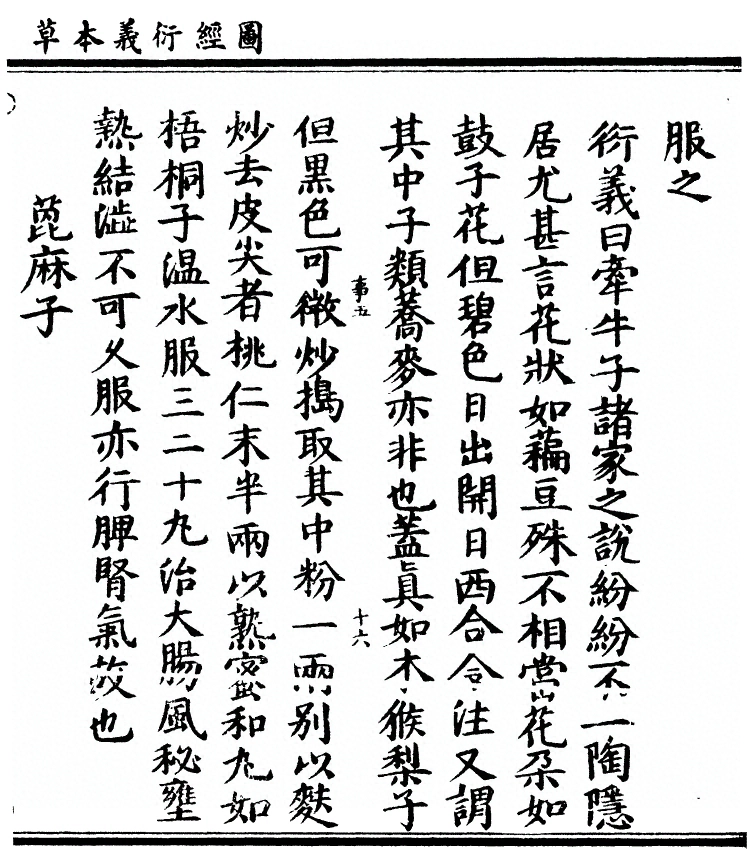 圖經衍義本草
服之
衍義曰牽牛子諸家之說紛紛不一陶隱
居尤甚言花狀如藊豆殊不相當花朶如
鼓子花但碧色日出開日西合今注又謂
其中子類蕎麥亦非也蓋眞如木猴梨子
事五
十六
但黑色可微炒搗取其中粉一兩別以麩
炒去皮尖者桃仁末半兩以熟蜜和丸如
梧桐子温水服三二十丸治大腸風秘壅
熱結澁不可久服亦行脾腎氣故也
蓖麻子